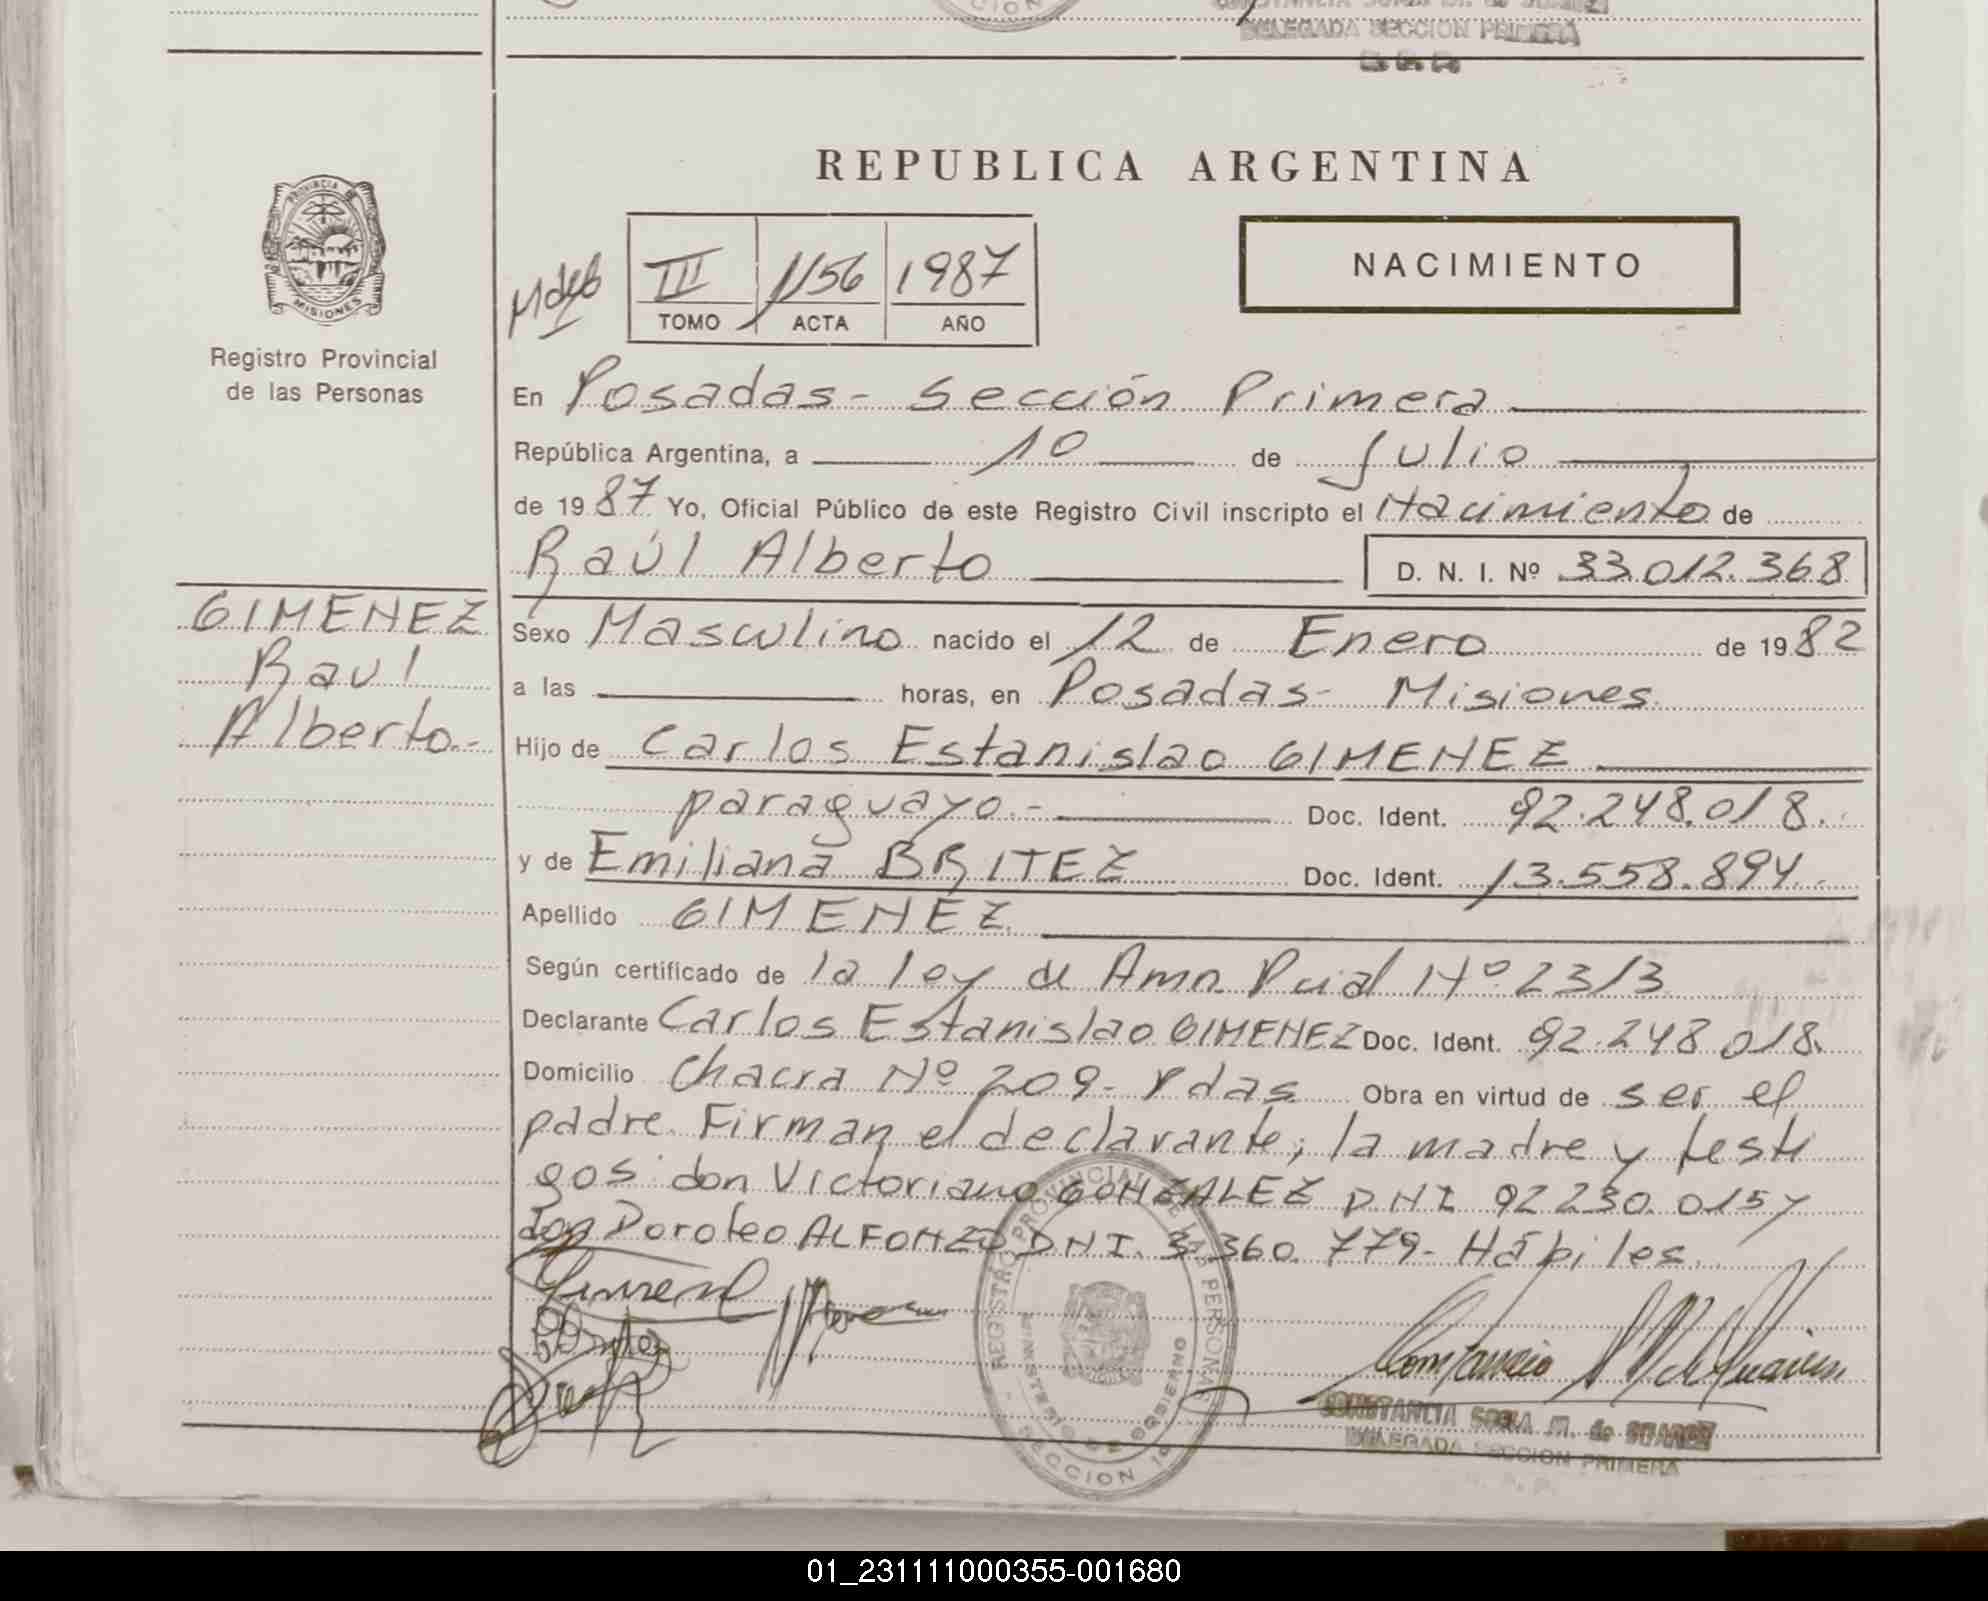 DELEGADA SECCION PRIMERA
REPUBLICA ARGENTINA
NACIMIENTO
III 1156 1987
TOMO ACTA AÑO
PROVINCIA DE MISIONES
Registro Provincial
de las Personas
GIMENEZ
Raul
Alberto.-
En Posadas - Sección Primera
República Argentina, a 10 de Julio
de 1987 Yo, Oficial Público de este Registro Civil inscripto el Nacimiento de
Raúl Alberto D. N. I. Nº 33.012.368
Sexo Masculino nacido el 12 de Enero de 1982
a las horas, en Posadas - Misiones.
Hijo de Carlos Estanislao GIMENEZ
paraguayo.- Doc. Ident. 92.248.018.
y de Emiliana BRITEZ Doc. Ident. 13.558.894.-
Apellido GIMENEZ
Según certificado de la ley de Amn. Pcial Nº 2313
Declarante Carlos Estanislao GIMENEZ Doc. Ident. 92.248.018.
Domicilio Chacra Nº 209 - Pdas. Obra en virtud de ser el
padre. Firman el declarante, la madre y testi
gos don Victoriano GONZALEZ DNI 92.230.015 y
don Doroteo ALFONZO DNI. 3.360.779 - Hábiles.
REGISTRO PROVINCIAL DE LAS PERSONAS
MINISTERIO DE GOBIERNO
SECCION 1a
CONSTANCIA M. de SUAREZ
DELEGADA SECCION PRIMERA
01_231111000355-001680